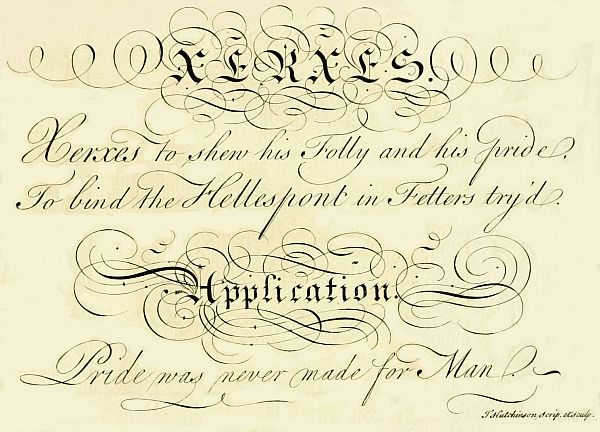 XERXES.
Xerxes to shew his Folly and his pride,
To bind the Hellespont in Fetters try'd.
Application.
Pride was never made for Man.
T. Hutchinson scrip. et sculp.